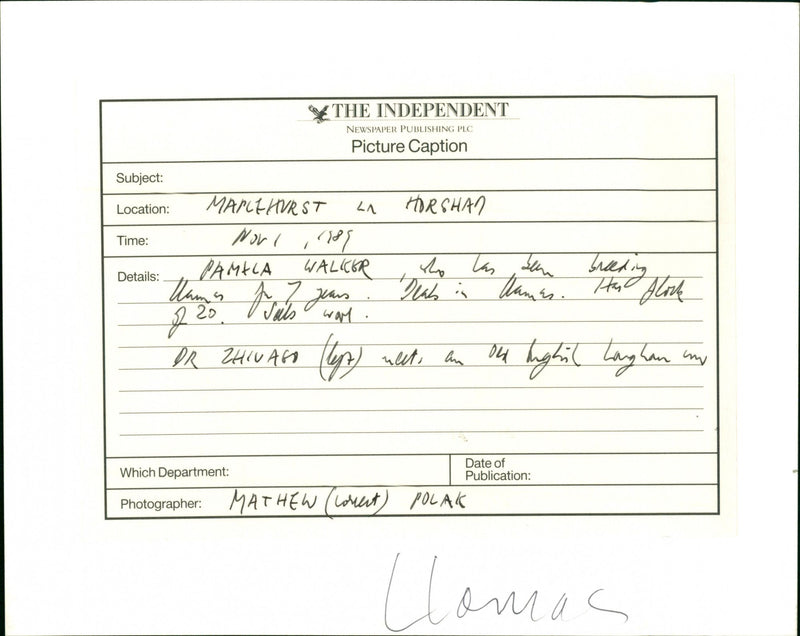 THE INDEPENDENT
NEWSPAPER PUBLISHING PLC
Picture Caption
Subject:
Location: MAPLEHURST HORSHAM
Time: NOV 1, 1989
Details: PAMELA WALKER, who has been breeding
llamas for 7 years. Deals in llamas. Has flock
of 20. Sells wool.
DR ZHIVAGO (left) meets an Old English Longhorn cow
Which Department:
Date of
Publication:
Photographer: MATHEW POLAK
Llamas